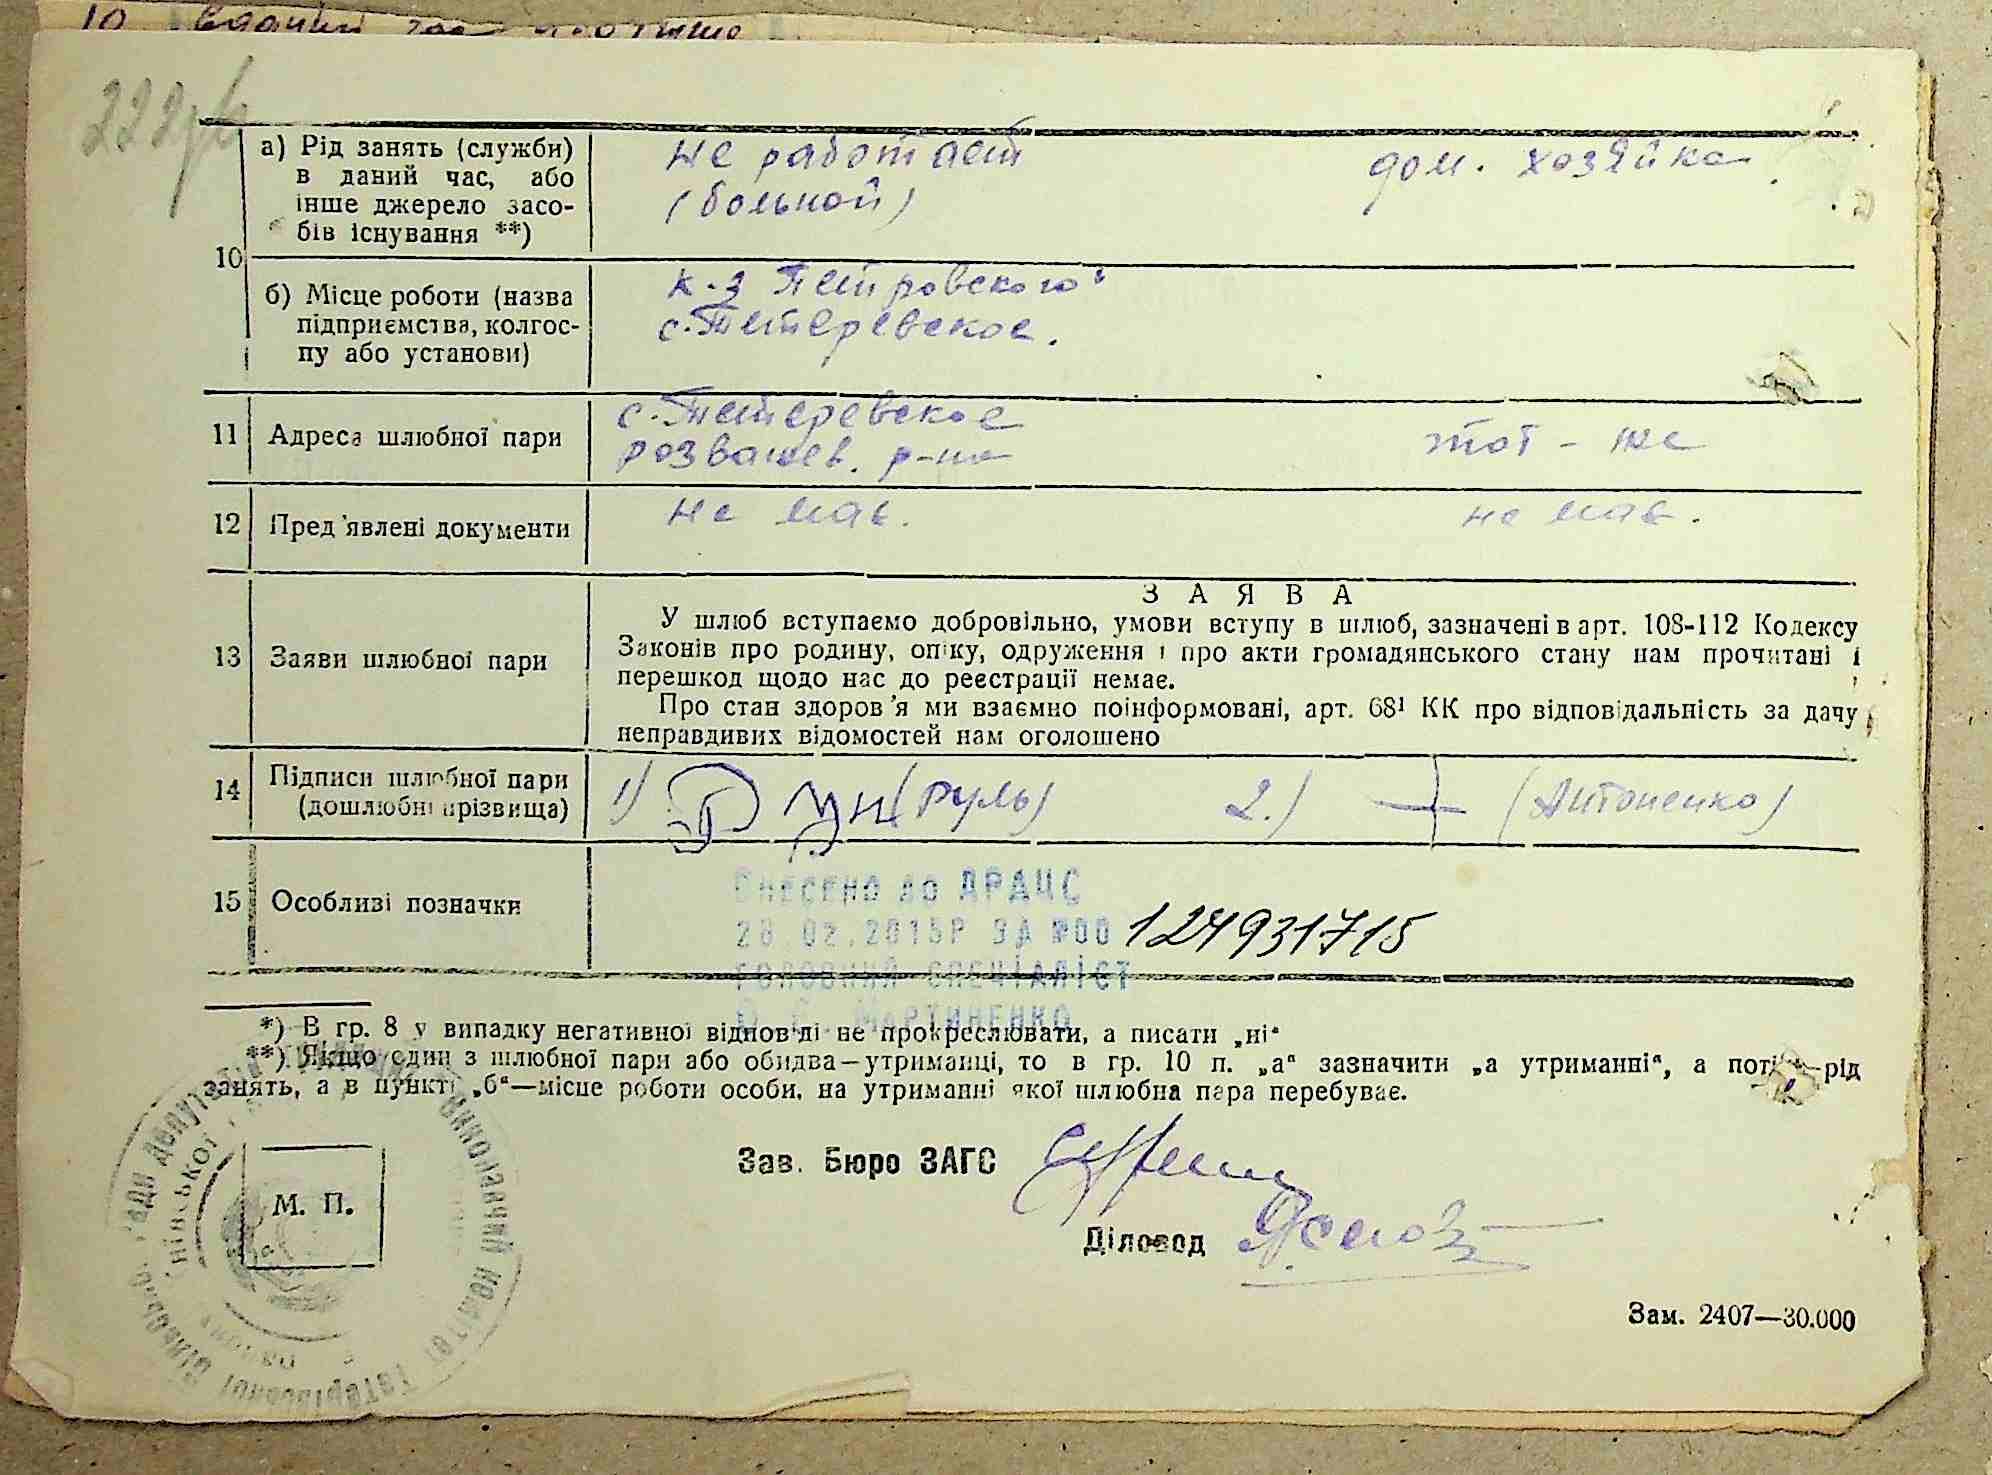 222
10
а) Рід занять (служби)
в даний час, або
інше джерело засо-
бів існування **)
не работает
(больной)
дом. хозяйка
б) Місце роботи (назва
підприємства, колгос-
пу або установи)
к-з Петровского
с. Тетеревское.
11 Адреса шлюбної пари
с. Тетеревское
розважев. р-на
этот-же
12 Пред'явлені документи
не має.
не має.
13 Заяви шлюбної пари
ЗАЯВА
У шлюб вступаємо добровільно, умови вступу в шлюб, зазначені в арт. 108-112 Кодексу
Законів про родину, опіку, одруження і про акти громадянського стану нам прочитані і
перешкод щодо нас до реєстрації немає.
Про стан здоров'я ми взаємно поінформовані, арт. 68¹ КК про відповідальність за дачу
неправдивих відомостей нам оголошено
14 Підписи шлюбної пари
(дошлюбні прізвища)
1) (Руль) 2.) (Антоненко)
15 Особливі позначки
Внесено до ДРАЦС
28.02.2015Р ЗА №00 124931715
головний спеціаліст
Мартиненко
*) В гр. 8 у випадку негативної відповіді не прокреслювати, а писати „ні“
**) Якщо один з шлюбної пари або обидва—утриманці, то в гр. 10 п. „а“ зазначити „а утриманні“, а потім—рід
занять, а в пункті „б“—місце роботи особи, на утриманні якої шлюбна пара перебуває.
М. П.
Зав. Бюро ЗАГС
Діловод
Зам. 2407—30.000